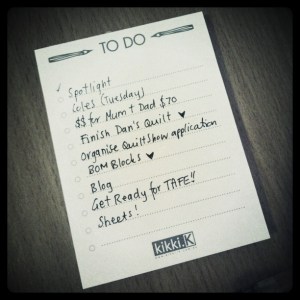 TO DO
✓ Spotlight
Coles (Tuesday)
$$ for Mum + Dad $70
Finish Dan's Quilt ♥
Organise Quiltshow application
BOM Blocks ♥
Blog
Get Ready for TAFE!!
Sheets!
kikki.K